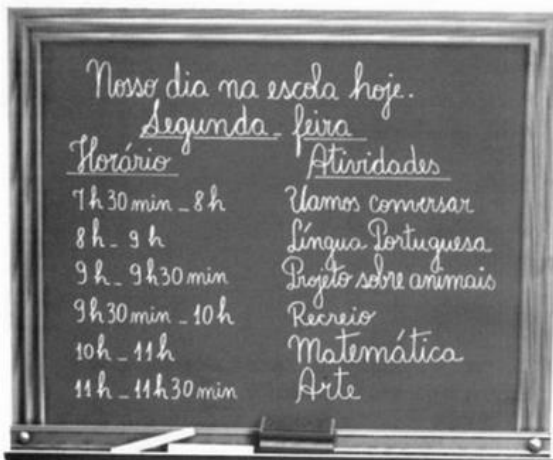 Nosso dia na escola hoje.
Segunda-feira
Horário Atividades
7h30min-8h Vamos conversar
8h-9h Língua Portuguesa
9h-9h30min Projeto sobre animais
9h30min-10h Recreio
10h-11h Matemática
11h-11h30min Arte